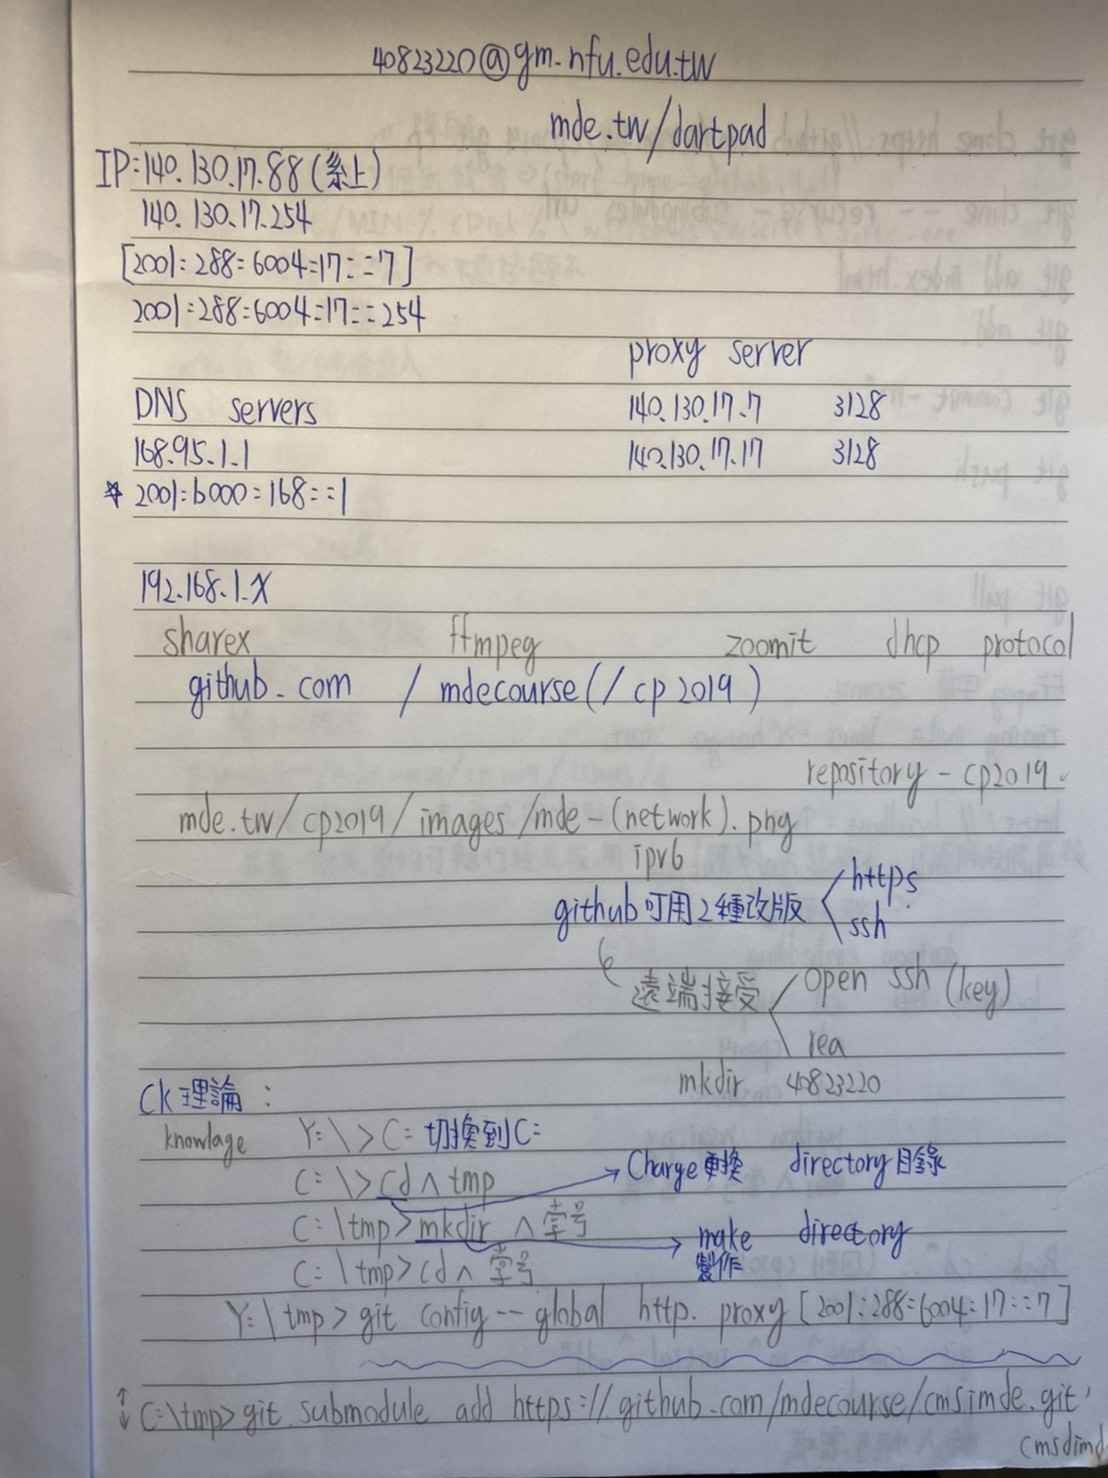 40823220@gm.nfu.edu.tw
mde.tw/dartpad
IP:140.130.17.88(系上)
140.130.17.254
[2001:288:6004:17::7]
2001:288:6004:17::254
proxy server
DNS servers 140.130.17.7 3128
168.95.1.1 140.130.17.17 3128
2001:b000:168::1
192.168.1.X
sharex ffmpeg zoomit dhcp protocol
github.com / mdecourse(/cp2019)
repository - cp2019
mde.tw/cp2019/images/mde-(network).png
ipv6
github可用2種改版 https
ssh
遠端接受 open ssh (key)
rea
mkdir 40823220
Ck理論:
knowlage Y:\>C: 切換到C:
C:\>cd ∧ tmp Charge更換 directory目錄
C:\tmp>mkdir ∧ 學号 make directory
製作
C:\tmp>cd ∧ 學号
Y:\tmp>git config --global http.proxy [2001:288:6004:17::7]
C:\tmp>git submodule add https://github.com/mdecourse/cmsimde.git